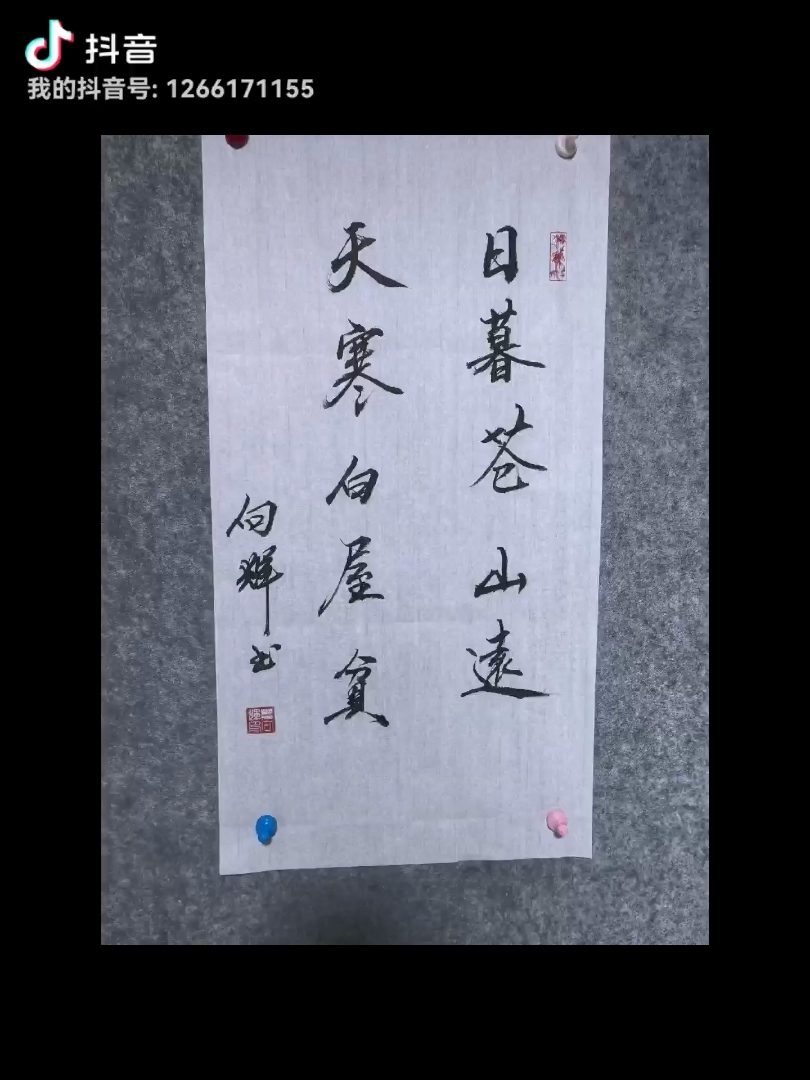 抖音
我的抖音号: 1266171155
日暮苍山遠
天寒白屋貧
向輝书